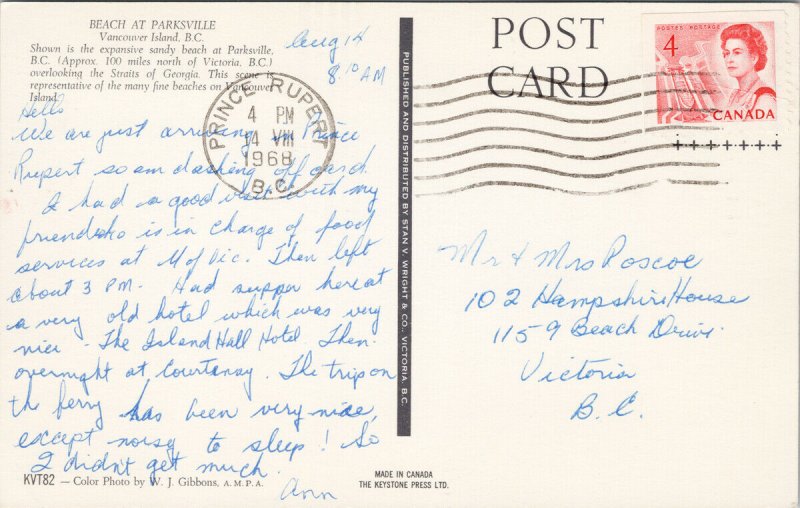 BEACH AT PARKSVILLE
Vancouver Island, B.C.
Shown is the expansive sandy beach at Parksville,
B.C. (Approx. 100 miles north of Victoria, B.C.)
overlooking the Straits of Georgia. This scene is
representative of the many fine beaches on Vancouver
Island.
Aug 14
8.10 AM
Hello
We are just arriving in Prince
Rupert so am dashing off card.
I had a good visit with my
friend who is in charge of food
services at U of Vic. Then left
about 3 PM. Had supper here at
a very old hotel which was very
nice - The Island Hall Hotel Then
overnight at Courtenay. The trip on
the ferry has been very nice,
except noisy to sleep! So
I didn't get much.
Ann
KVT82 — Color Photo by W. J. Gibbons, A.M.P.A.
PRINCE RUPERT
4 PM
14 VIII
1968
B.C.
PUBLISHED AND DISTRIBUTED BY STAN V. WRIGHT & CO., VICTORIA, B.C.
POST
CARD
POSTES POSTAGE
4
CANADA
Mr & Mrs Roscoe
102 Hampshire House
1159 Beach Drive
Victoria
B.C.
MADE IN CANADA
THE KEYSTONE PRESS LTD.